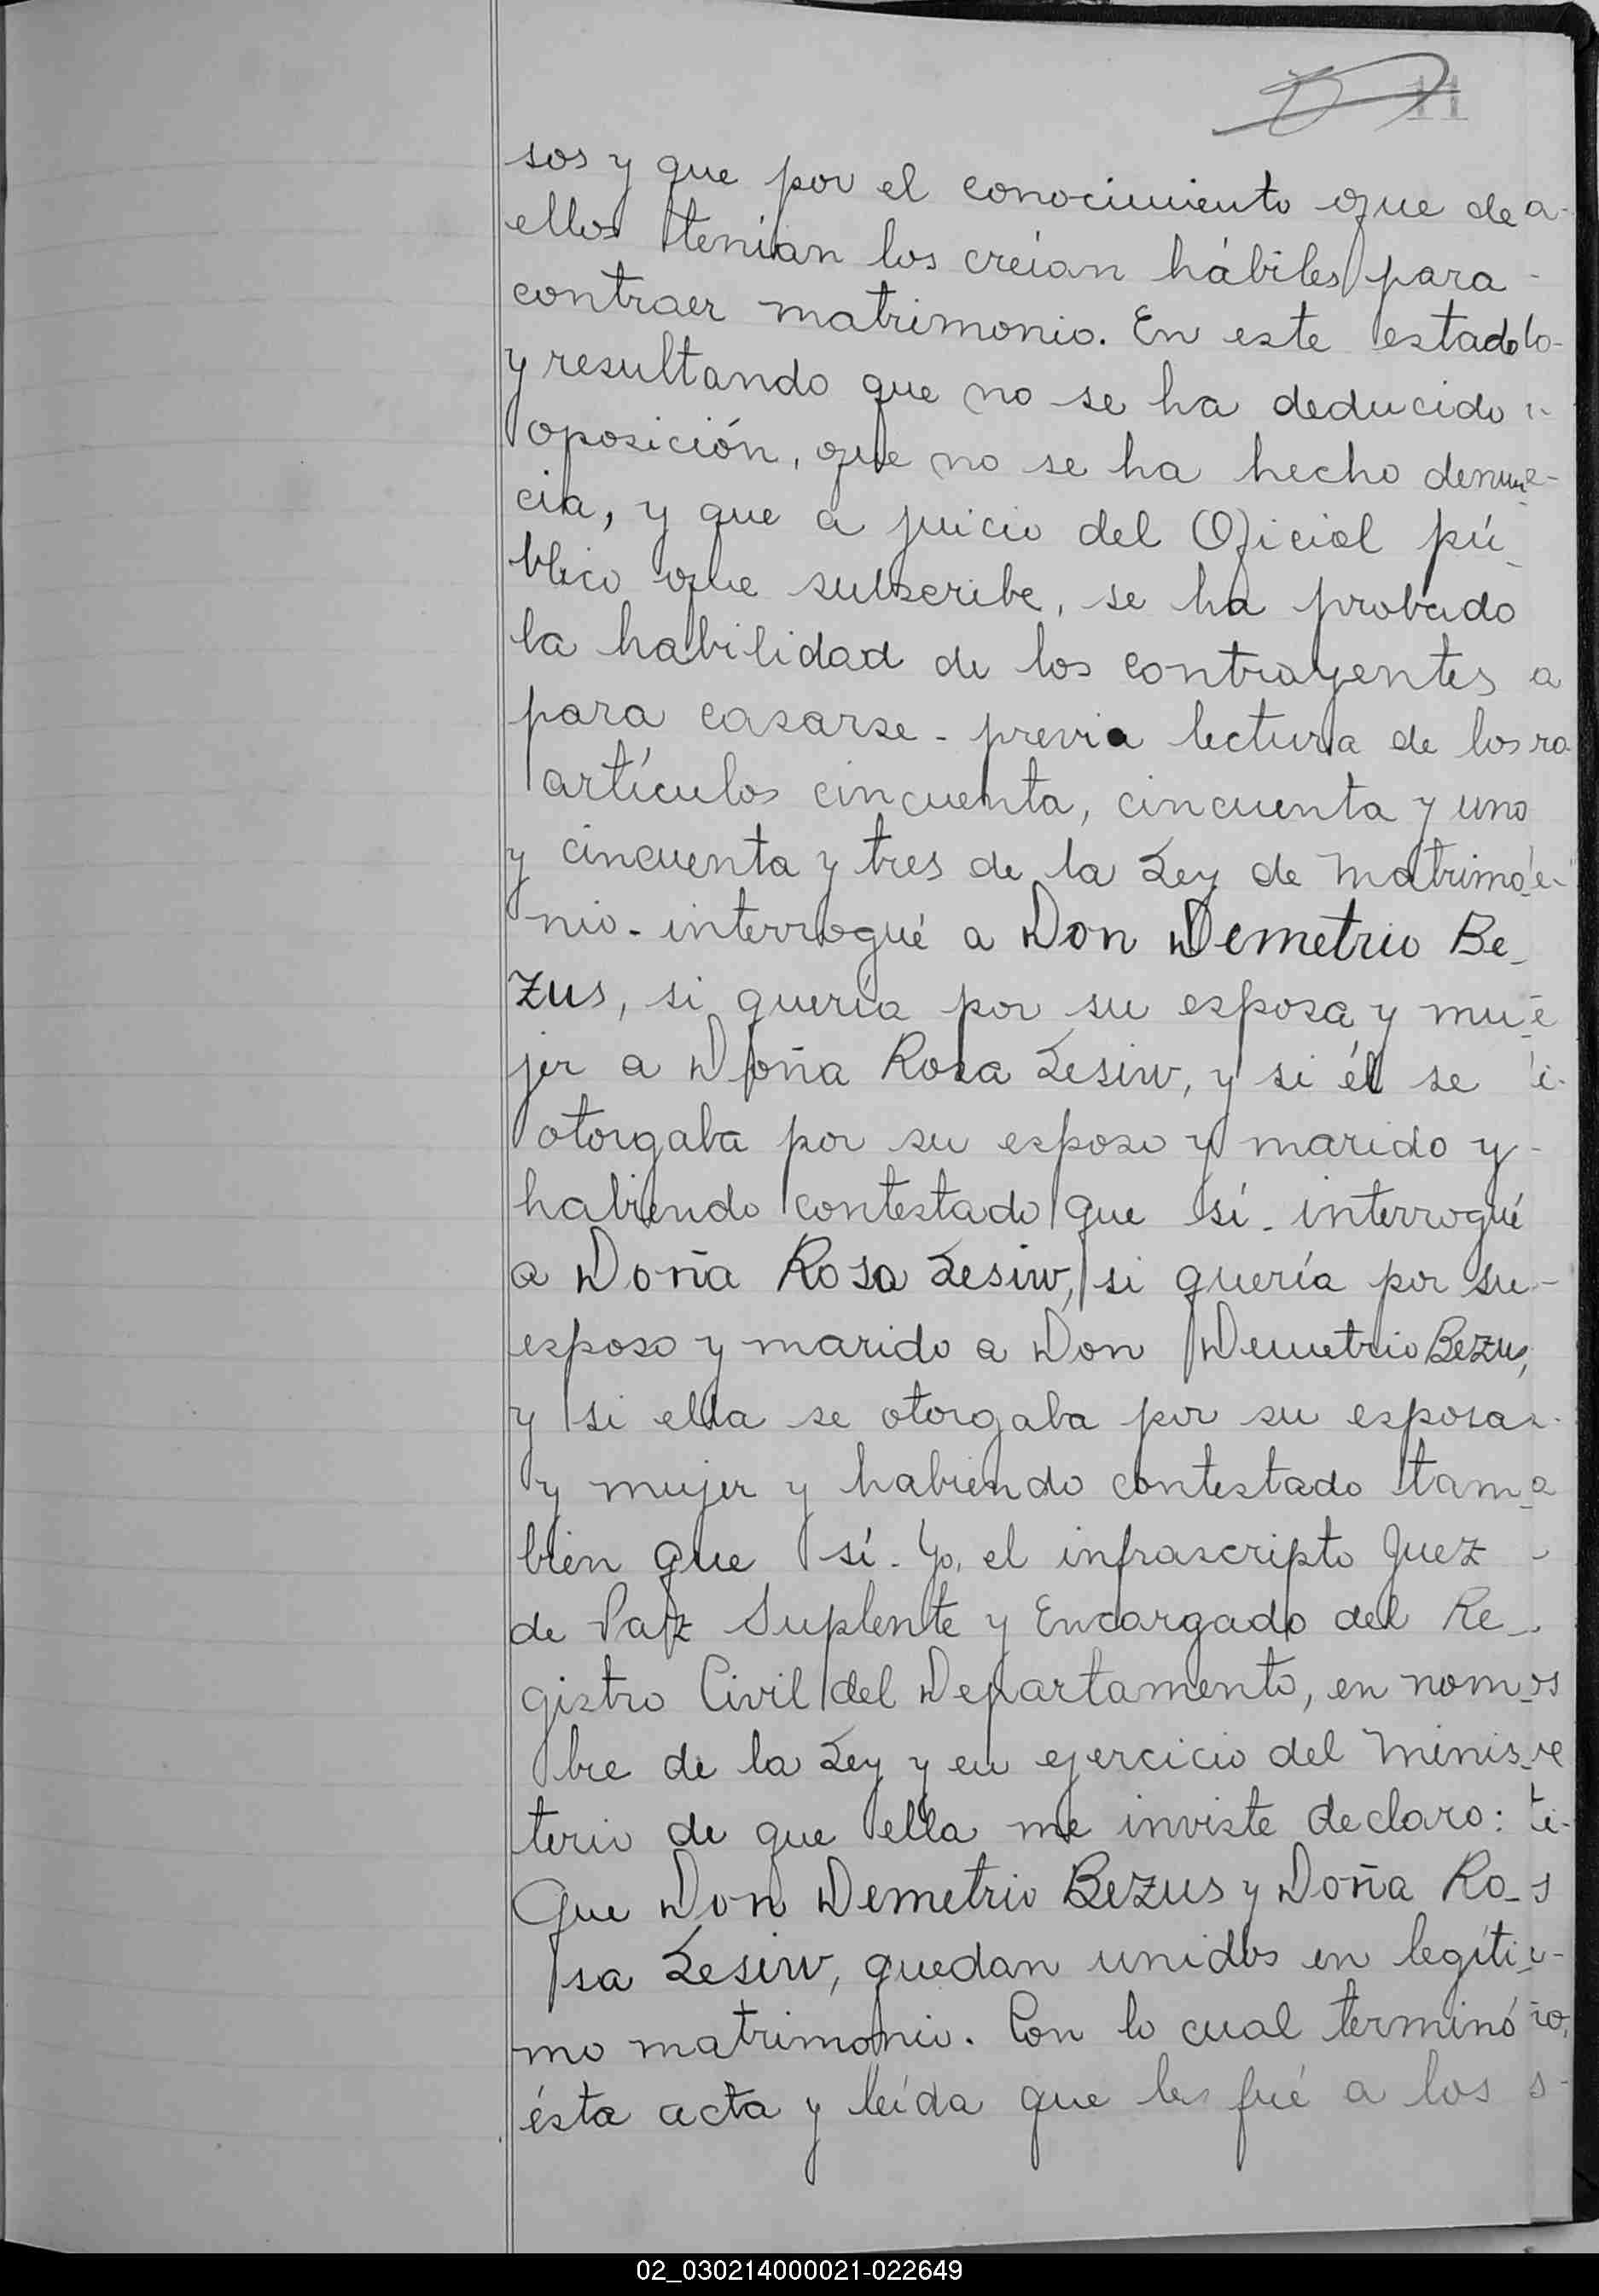 11
sos y que por el conocimiento que de
ellos tenían los creían hábiles para
contraer matrimonio. En este estado
y resultando que no se ha deducido
oposición, que no se ha hecho denun-
cia, y que a juicio del Oficial pú-
blico que subscribe, se ha probado
la habilidad de los contrayentes
para casarse - previa lectura de los
artículos cincuenta, cincuenta y uno
y cincuenta y tres de la Ley de Matrimo-
nio - interrogué a Don Demetrio Be-
zus, si quería por su esposa y mu-
jer a Doña Rosa Lesiw, y si él se
otorgaba por su esposo y marido y
habiendo contestado que sí - interrogué
a Doña Rosa Lesiw, si quería por su
esposo y marido a Don Demetrio Bezus,
y si ella se otorgaba por su esposa
y mujer y habiendo contestado tam-
bien que sí - Yo, el infrascripto Juez
de Paz Suplente y Encargado del Re-
gistro Civil del Departamento, en nom-
bre de la Ley y en ejercicio del Minis-
terio de que ella me inviste declaro:
Que Don Demetrio Bezus y Doña Ro-
sa Lesiw, quedan unidos en legíti-
mo matrimonio. Con lo cual terminó
ésta acta y leída que les fué a los
02_030214000021-022649